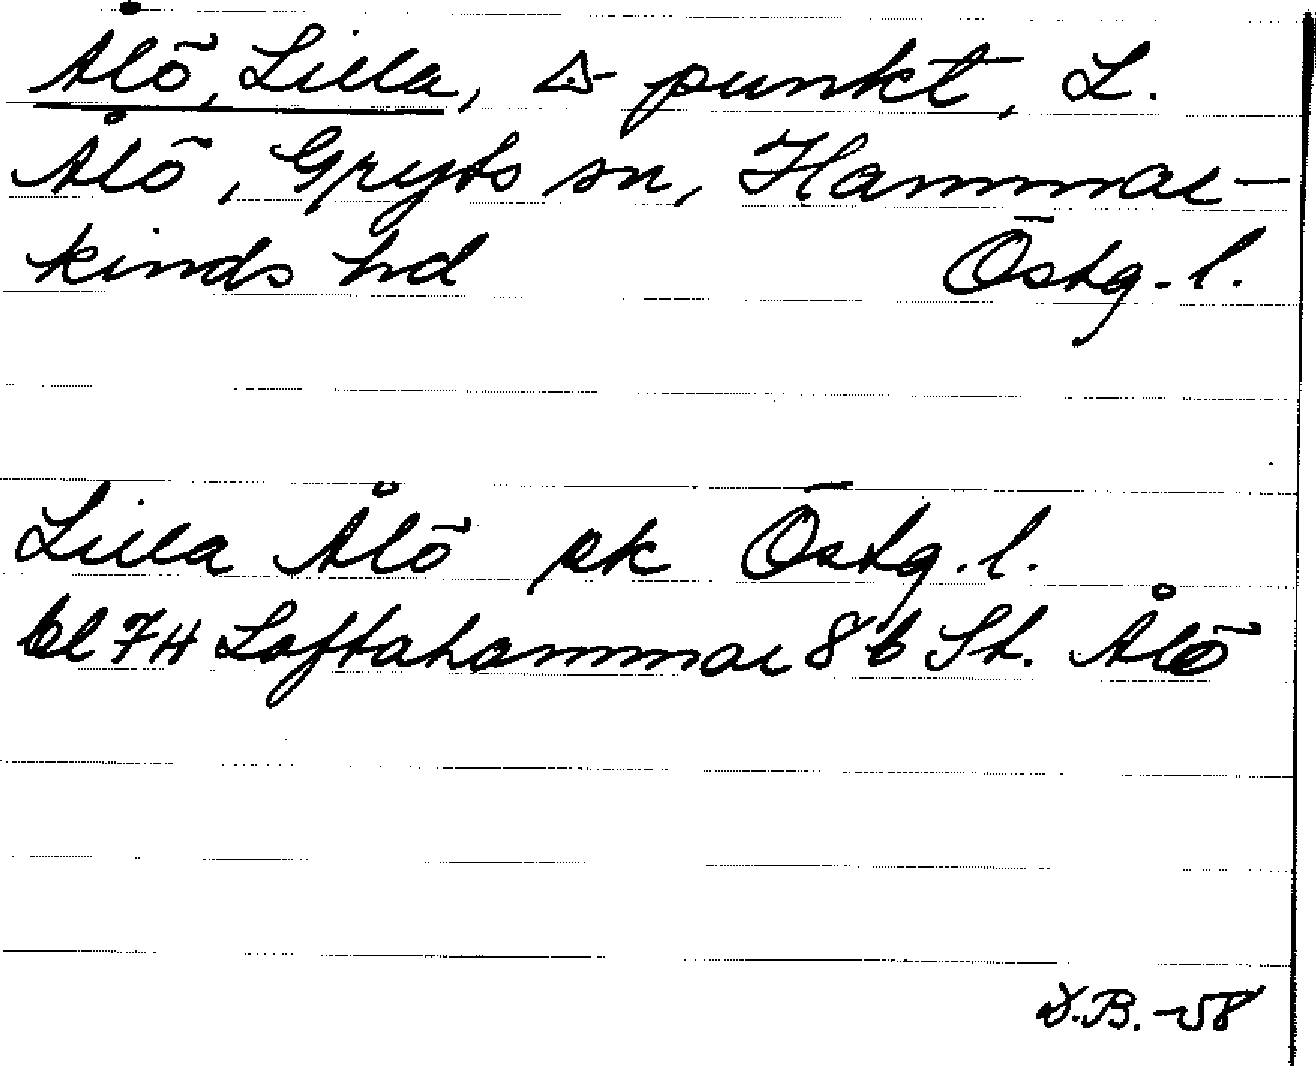 Ålö, Lilla, △-punkt, L.
Ålö, Gryts sn, Hammar-
kinds hd Östg.l.
Lilla Ålö pk Östg.l.
bl 74 Loftahammar 8b St. Ålö
D.B.-58